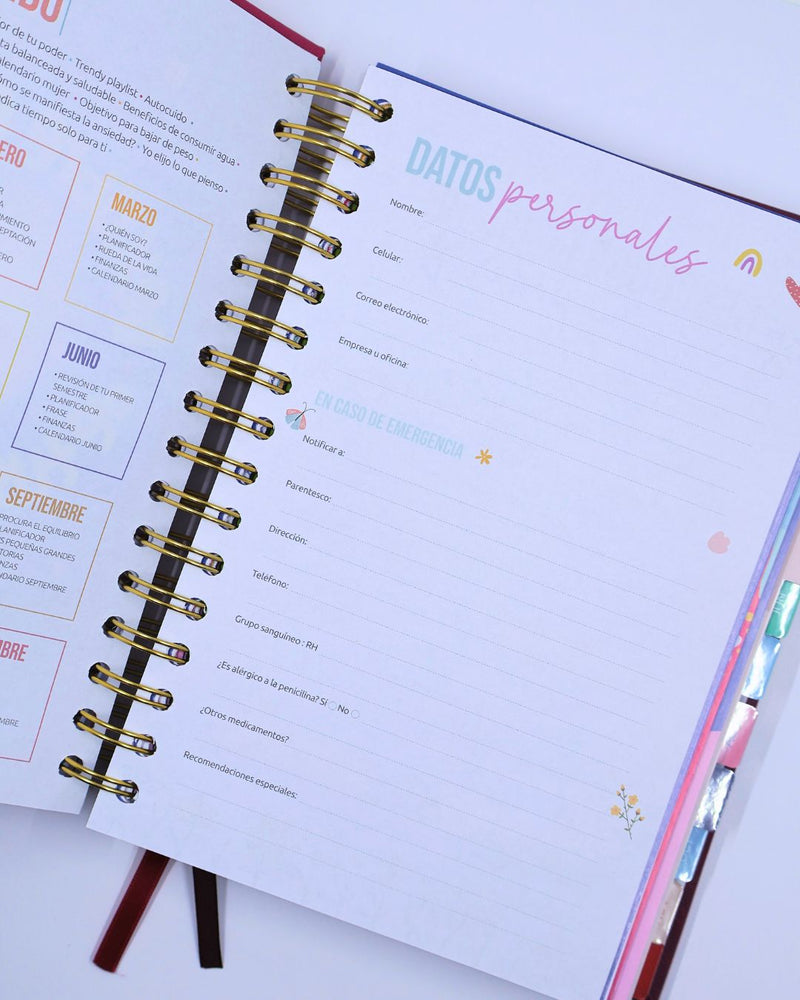 or de tu poder • Trendy playlist • Autocuido •
ta balanceada y saludable • Beneficios de consumir agua •
alendario mujer • Objetivo para bajar de peso •
ómo se manifiesta la ansiedad? • Yo elijo lo que pienso •
dica tiempo solo para ti •
ERO
MIENTO
EPTACIÓN
ERO
MARZO
• ¿QUIÉN SOY?
• PLANIFICADOR
• RUEDA DE LA VIDA
• FINANZAS
• CALENDARIO MARZO
JUNIO
• REVISIÓN DE TU PRIMER
SEMESTRE
• PLANIFICADOR
• FRASE
• FINANZAS
• CALENDARIO JUNIO
SEPTIEMBRE
PROCURA EL EQUILIBRIO
LANIFICADOR
S PEQUEÑAS GRANDES
TORIAS
NZAS
NDARIO SEPTIEMBRE
MBRE
EMBRE
DATOS personales
Nombre:
Celular:
Correo electrónico:
Empresa u oficina:
EN CASO DE EMERGENCIA
Notificar a:
Parentesco:
Dirección:
Teléfono:
Grupo sanguíneo : RH
¿Es alérgico a la penicilina? Sí No
¿Otros medicamentos?
Recomendaciones especiales: